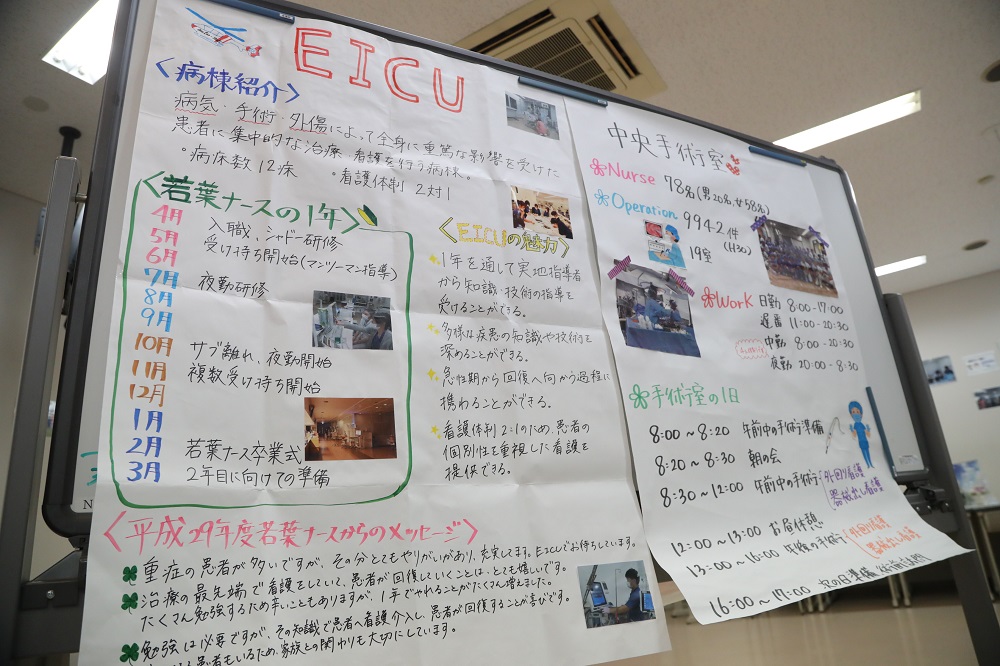 EICU
<病棟紹介>
病気・手術・外傷によって全身に重篤な影響を受けた
患者に集中的な治療・看護を行う病棟。
・病床数 12床 ・看護体制 2対1
<若葉ナースの1年>
4月 入職、シャドー研修
5月 受け持ち開始(マンツーマン指導)
6月
7月 夜勤研修
8月
9月
10月 サブ離れ、夜勤開始
11月 複数受け持ち開始
12月
1月
2月 若葉ナース卒業式
3月 2年目に向けての準備
<EICUの魅力>
1年を通して実地指導者
から知識・技術の指導を
受けることができる。
多様な疾患の知識や技術を
深めることができる。
急性期から回復へ向かう過程に
携わることができる。
看護体制2:1のため、患者の
個別性を重視した看護を
提供できる。
<平成29年度若葉ナースからのメッセージ>
重症の患者が多いですが、その分とてもやりがいがあり、充実してます。EICUでお待ちしています。
治療の最先端で看護をしていて、患者が回復していくことは、とても嬉しいです。
たくさん勉強するため辛いこともありますが、1年でやれることがたくさん増えました。
勉強は必要ですが、その知識で患者へ看護介入し、患者が回復することが喜びです。
患者もいるため、家族との関わりも大切にしています。
中央手術室
Nurse 78名(男20名 女58名)
Operation 9942件
(H30)
19室
Work 日勤 8:00-17:00
遅番 11:00-20:30
中勤 8:00-20:30
夜勤 20:00-8:30
手術室の1日
8:00～8:20 午前中の手術準備
8:20～8:30 朝の会
8:30～12:00 午前中の手術
外回り看護
器械出し看護
12:00～13:00 お昼休憩
13:00～16:00 午後の手術
外回り看護
器械出し看護
16:00～17:00 次の日準備